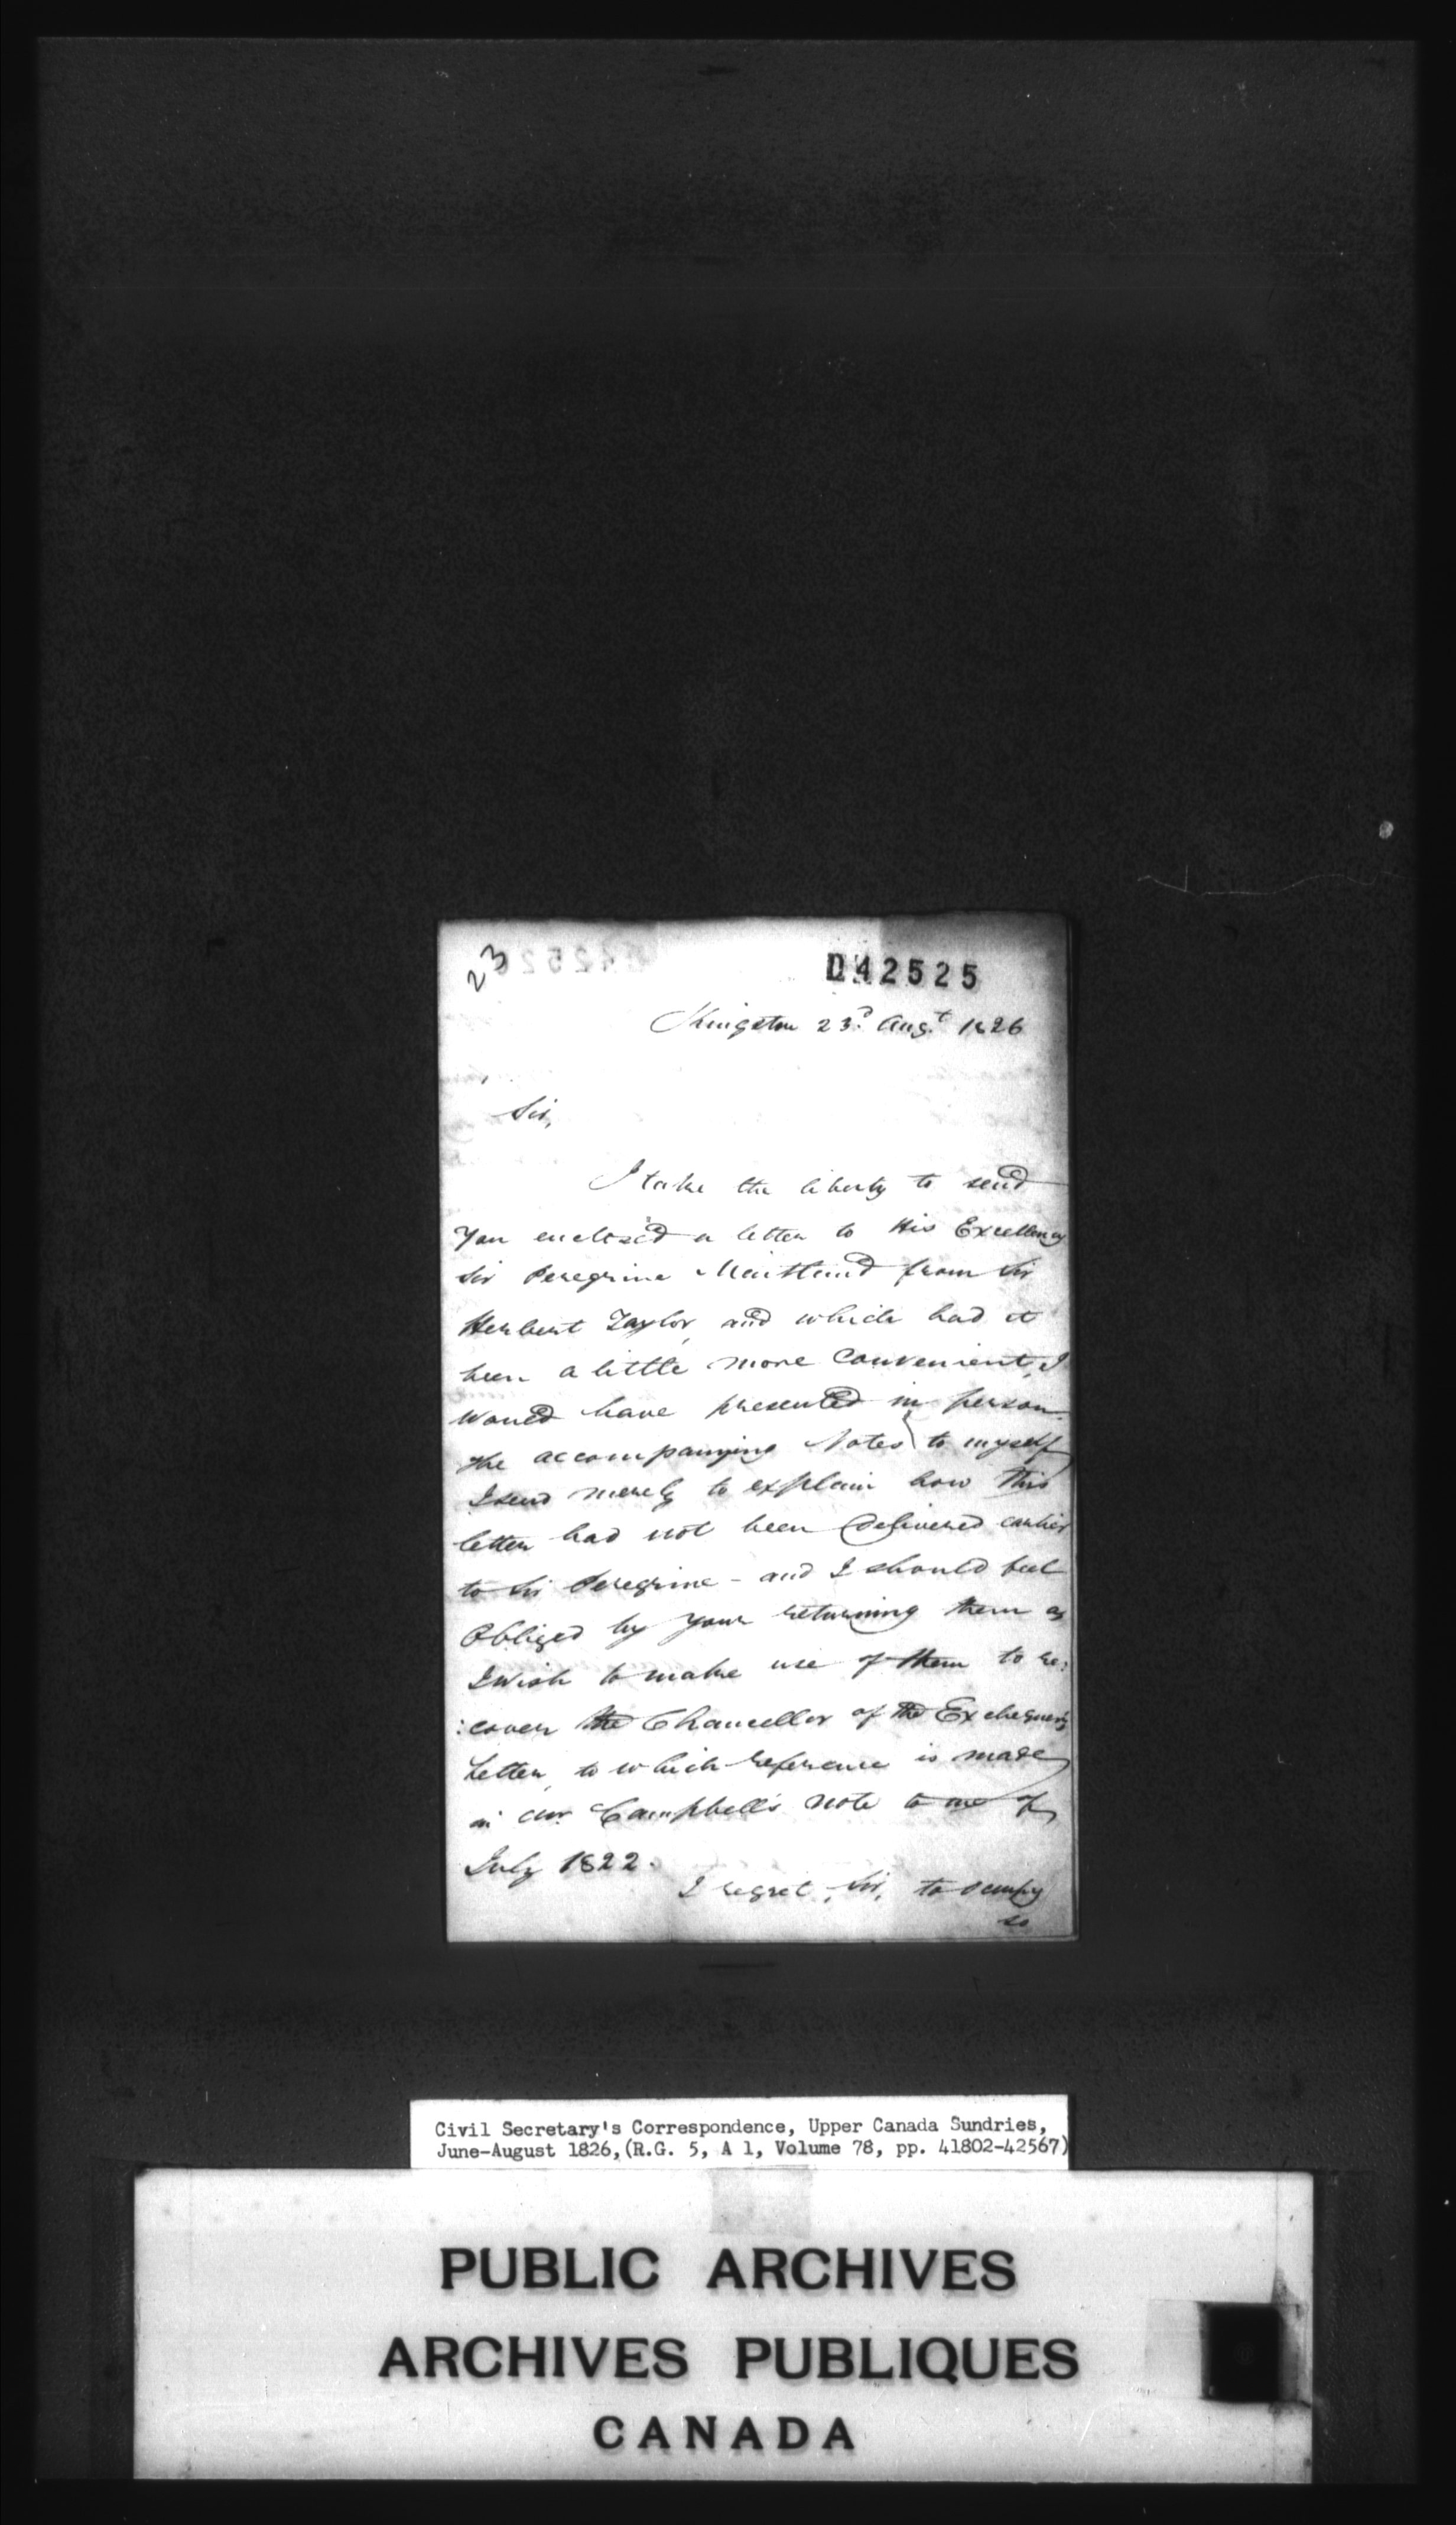 23
D42525
Kingston 23d. Augt. 1826
Sir,
I take the liberty to send
You enclos'd a letter to His Excellency
Sir Peregrine Maitland from Sir
Herbert Taylor, and which had it
been a little more Convenient, I
Would have presented in person.
The accompanying Notes to myself
I send merely to explain how this
letter had not been Delivered earlier
to Sir Peregrine - and I should feel
Obliged by your returning them as
I wish to make use of them to re:
:cover the Chancellor of the Exchequer's
Letter, to which reference is made
in Campbell's note to me of
July 1822.
I regret, Sir, to occupy
so
Civil Secretary's Correspondence, Upper Canada Sundries,
June-August 1826,(R.G. 5, A 1, Volume 78, pp. 41802-42567)
PUBLIC ARCHIVES
ARCHIVES PUBLIQUES
CANADA